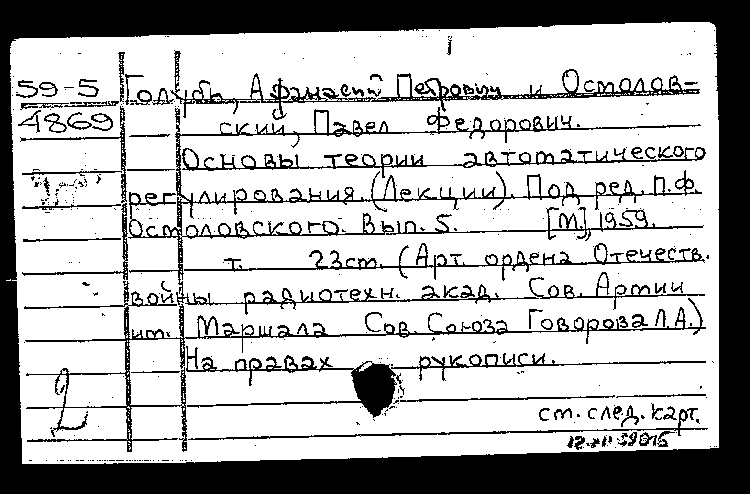 59-5 Голубь, Афанасий Петрович и Остолов-
4869 ский, Павел Федорович.
Основы теории автоматического
регулирования. (Лекции). Под ред. П.Ф.
Остоловского. Вып. 5. [М.], 1959.
т. 23см. (Арт. ордена Отечеств.
войны радиотехн. акад. Сов. Армии
им. Маршала Сов. Союза Говорова Л.А.)
На правах рукописи.
2
см. след. карт.